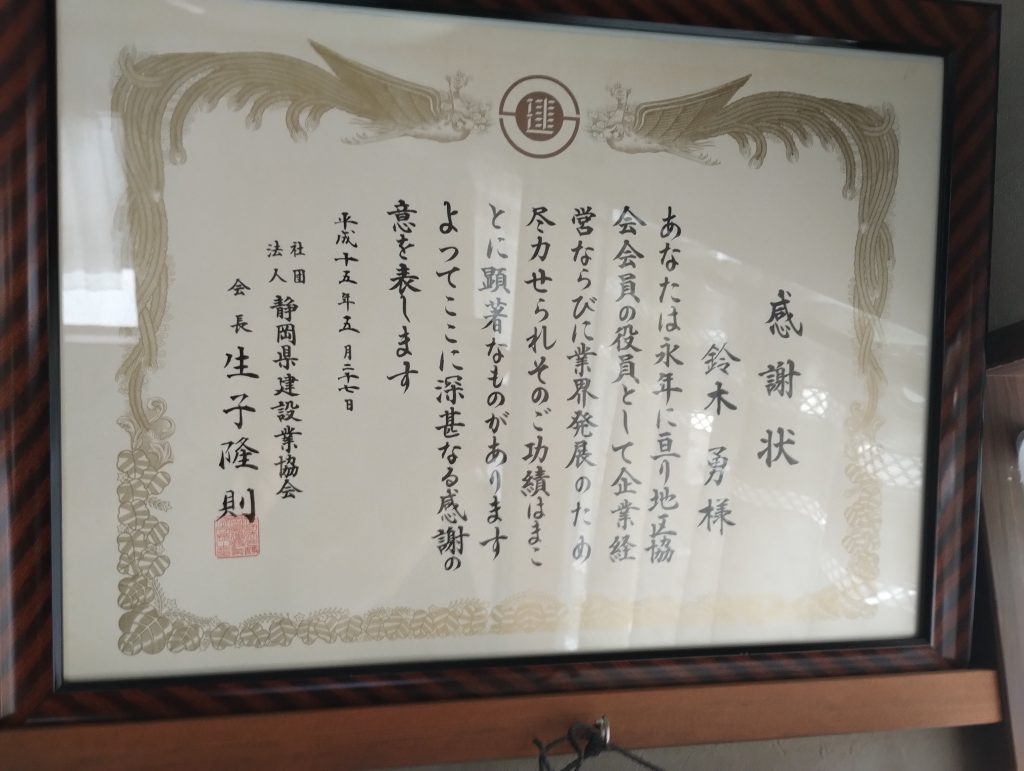 感謝状
鈴木勇様
あなたは永年に亘り地区協
会会員の役員として企業経
営ならびに業界発展のため
尽力せられそのご功績はまこ
とに顕著なものがあります
よってここに深甚なる感謝の
意を表します
平成十五年五月二十七日
社団法人静岡県建設業協会
会長生子隆則